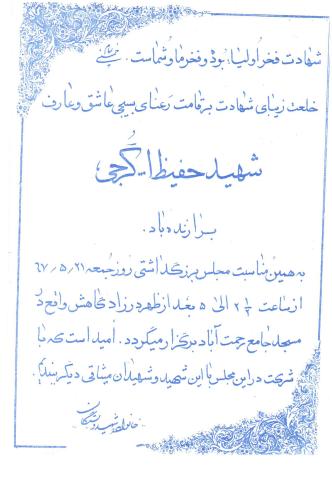 شهادت فخر اولیاء بوده و فخر ما و شماست. خمینی
خلعت زیبای شهادت برقامت رعنای بسیجی عاشق و عارف
شهید حفیظ ا... گرجی
برازنده باد.
به همین مناسبت مجلس بزرگداشتی روز جمعه ۲۱ـ۵ـ۶۷
از ساعت ۲/۵ الی ۵ بعد از ظهر در زادگاهش واقع در
مسجد جامع رحمت آباد برگزار میگردد. امید است که با
شرکت در این مجلس با این شهید و شهیدان میثاقی دیگر ببندیم.
خانواده شهید و بستگان